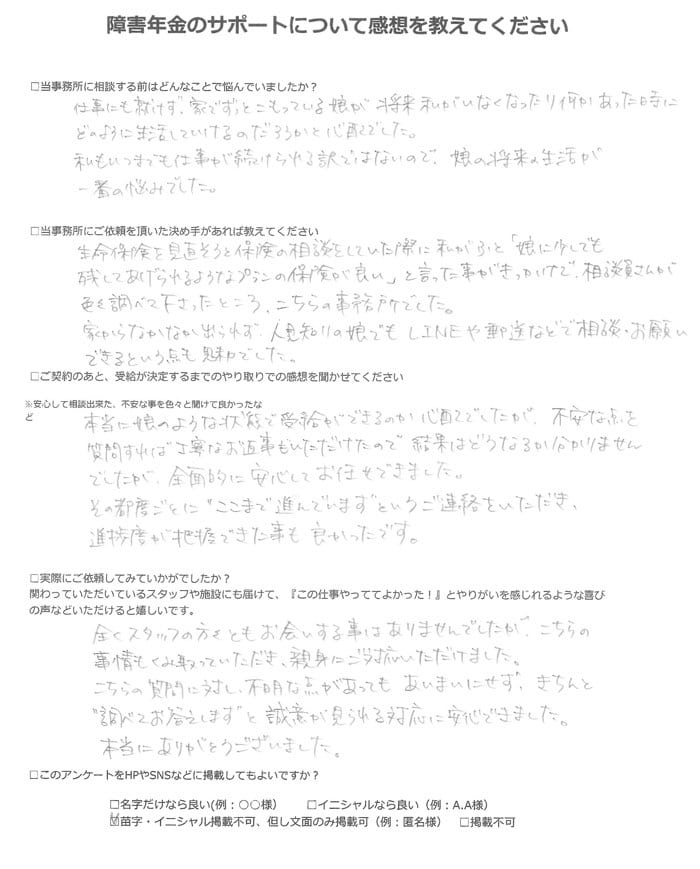 障害年金のサポートについて感想を教えてください
□当事務所に相談する前はどんなことで悩んでいましたか？
仕事にも就けず、家でずっとこもっている娘が、将来私がいなくなったり何かあった時に
どのように生活していけるのだろうかと心配でした。
私もいつまでも仕事が続けられる訳ではないので、娘の将来の生活が
一番の悩みでした。
□当事務所にご依頼を頂いた決め手があれば教えてください
生命保険を見直そうと保険の相談をしていた際に私がふと「娘に少しでも
残してあげられるようなプランの保険が良い」と言った事がきっかけで、相談員さんが
色々調べて下さったところ、こちらの事務所でした。
家からなかなか出られず、人見知りの娘でもLINEや郵送などで相談・お願い
できるという点も魅力でした。
□ご契約のあと、受給が決定するまでのやり取りでの感想を聞かせてください
※安心して相談出来た、不安な事を色々と聞けて良かったな
ど
本当に娘のような状態で受給ができるのか心配でしたが、不安な点を
質問すれば丁寧なお返事もいただけたので結果はどうなるか分かりません
でしたが、全面的に安心してお任せできました。
その都度ごとに"ここまで進んでいます"というご連絡をいただき、
進捗度が把握できた事も良かったです。
□実際にご依頼してみていかがでしたか？
関わっていただいているスタッフや施設にも届けて、『この仕事やっててよかった！』とやりがいを感じれるような喜び
の声などいただけると嬉しいです。
全くスタッフの方々ともお会いする事はありませんでしたが、こちらの
事情もくみ取っていただき、親身にご対応いただけました。
こちらの質問に対し、不明な点があってもあいまいにせず、きちんと
"調べてお答えします"と誠意が見られる対応に安心できました。
本当にありがとうございました。
□このアンケートをHPやSNSなどに掲載してもよいですか？
□名字だけなら良い(例：○○様) □イニシャルなら良い（例：A.A様）
☑苗字・イニシャル掲載不可、但し文面のみ掲載可（例：匿名様） □掲載不可